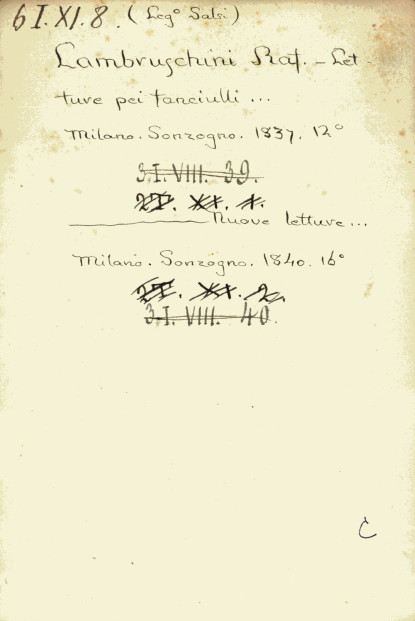 6 I. XI. 8. (Leg° Salsi)
Lambruschini Raf. - Let-
ture pei fanciulli ...
Milano. Sonzogno. 1837. 12°
3.I. VIII. 39.
2I. XX. 1.
Nuove letture...
Milano. Sonzogno. 1840. 16°
2I. XX. 2.
3.I. VIII. 40.
C